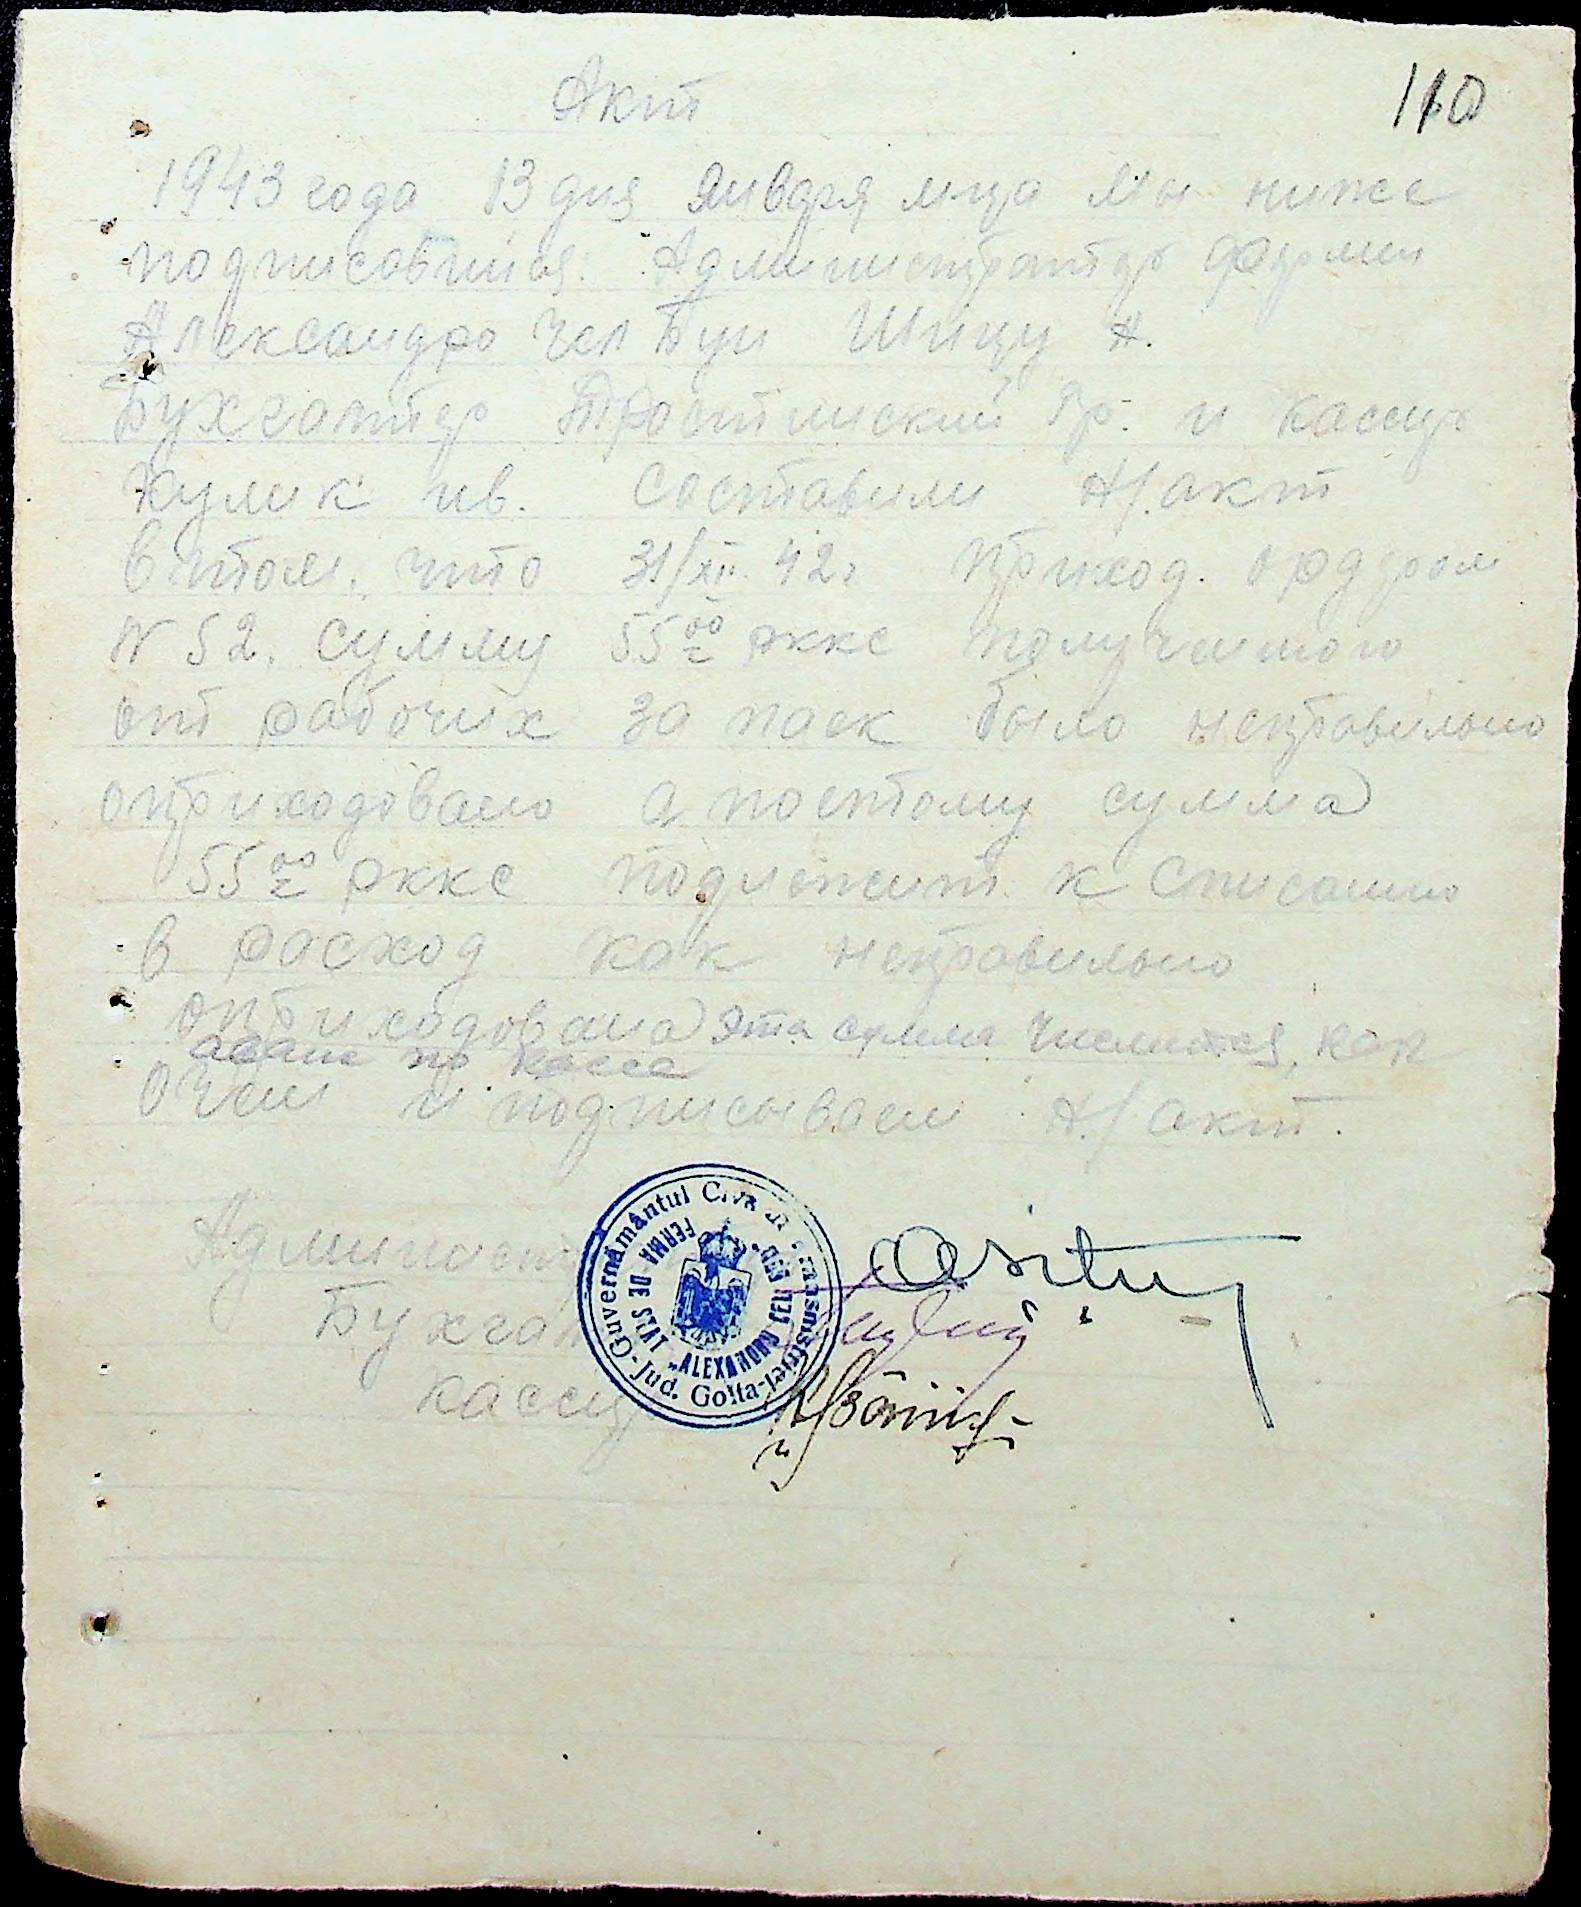 110
Акт
1943 года 13 дня января м-ца мы ниже
подписавшися. Администратор фермы
Александро Чел Бун Шицу А.
Бухгалтер и кассир
Кулик ив. составили н/.акт
в том, что 31/XII 42г приход. ордером
N 52. сумму 55 00 рккс полученного
от рабочих за паек было неправильно
оприходовано а поэтому сумма
55 00 рккс подлежит к списанию
в расход как неправильно
оприходована эта сумма числится, как
аванс по кассе
о чем и подписываем н./акт.
Админист
Бухгал
Кассир
Guvernământul Transnistriei - Jud. Golta
FERMA DE STAT „ALEXANDRU CEL BUN"